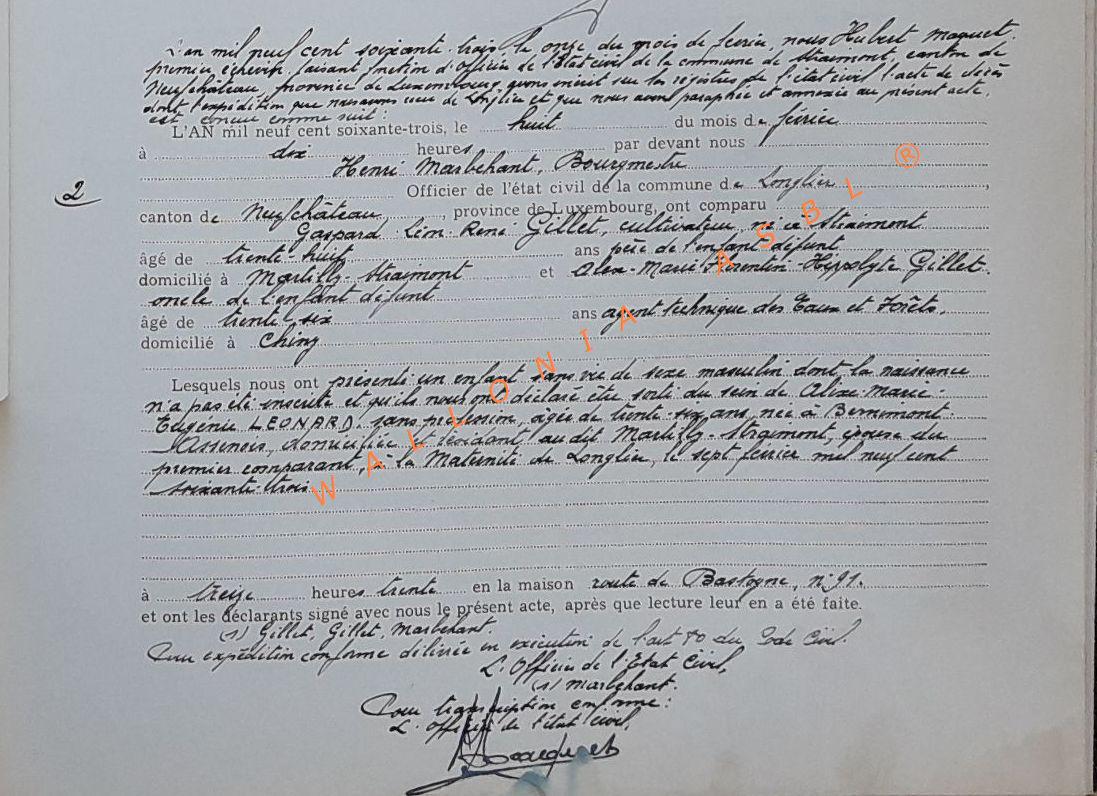 L'an mil neuf cent soixante-trois, le onze du mois de février, nous Hubert Maquet,
premier échevin, faisant fonction d'Officier de l'Etat civil de la commune de Straimont, canton de
Neufchâteau, province de Luxembourg, avons inscrit sur les registres de l'état civil l'acte de décès
dont l'expédition que nous avons reçue de Longlier et que nous avons paraphée et annexée au présent acte,
est conçue comme suit :
L'AN mil neuf cent soixante-trois, le huit du mois de février
à dix heures par devant nous
Henri Marbehant, Bourgmestre
2
Officier de l'état civil de la commune de Longlier,
canton de Neufchâteau, province de Luxembourg, ont comparu
Gaspard Léon René Gillet, cultivateur, né à Straimont
âgé de trente-huit ans père de l'enfant défunt
domicilié à Martilly-Straimont et Alex-Marie-Florentin-Hippolyte Gillet
oncle de l'enfant défunt
âgé de trente-six ans agent technique des Eaux et Forêts,
domicilié à Chiny
Lesquels nous ont présenté un enfant sans vie de sexe masculin dont la naissance
n'a pas été inscrite et qu'ils nous ont déclaré être sorti du sein de Alixe Marie
Eugénie LEONARD, sans profession, âgée de trente-six ans, née à Bernimont
Assenois, domiciliée et résidant audit Martilly-Straimont, épouse du
premier comparant, à la Maternité de Longlier, le sept février mil neuf cent
soixante-trois
à treize heures trente en la maison route de Bastogne, n° 91.
et ont les déclarants signé avec nous le présent acte, après que lecture leur en a été faite.
(s) Gillet, Gillet, Marbehant.
Pour expédition conforme délivrée en exécution de l'art 80 du Code Civil.
L'Officier de l'Etat Civil,
(s) Marbehant.
Pour transcription conforme :
L'Officier de l'état civil,
WALLONIA ASBL ®